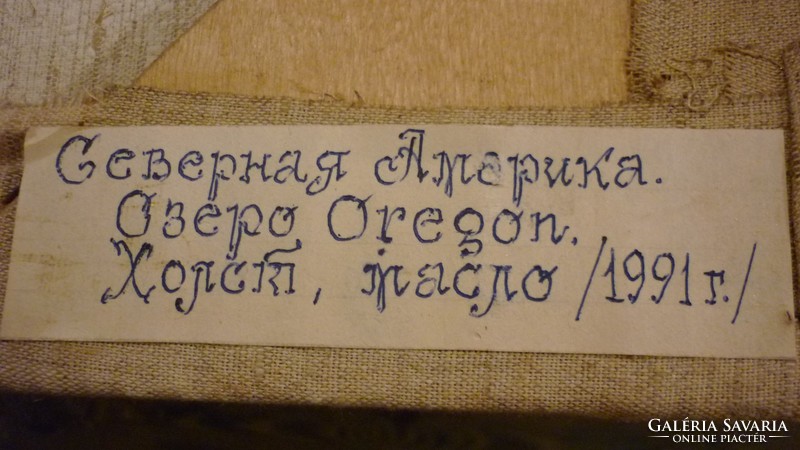 Северная Америка.
Озеро Oregon.
Холст, масло /1991 г./
GALÉRIA SAVARIA
ONLINE PIACTÉR